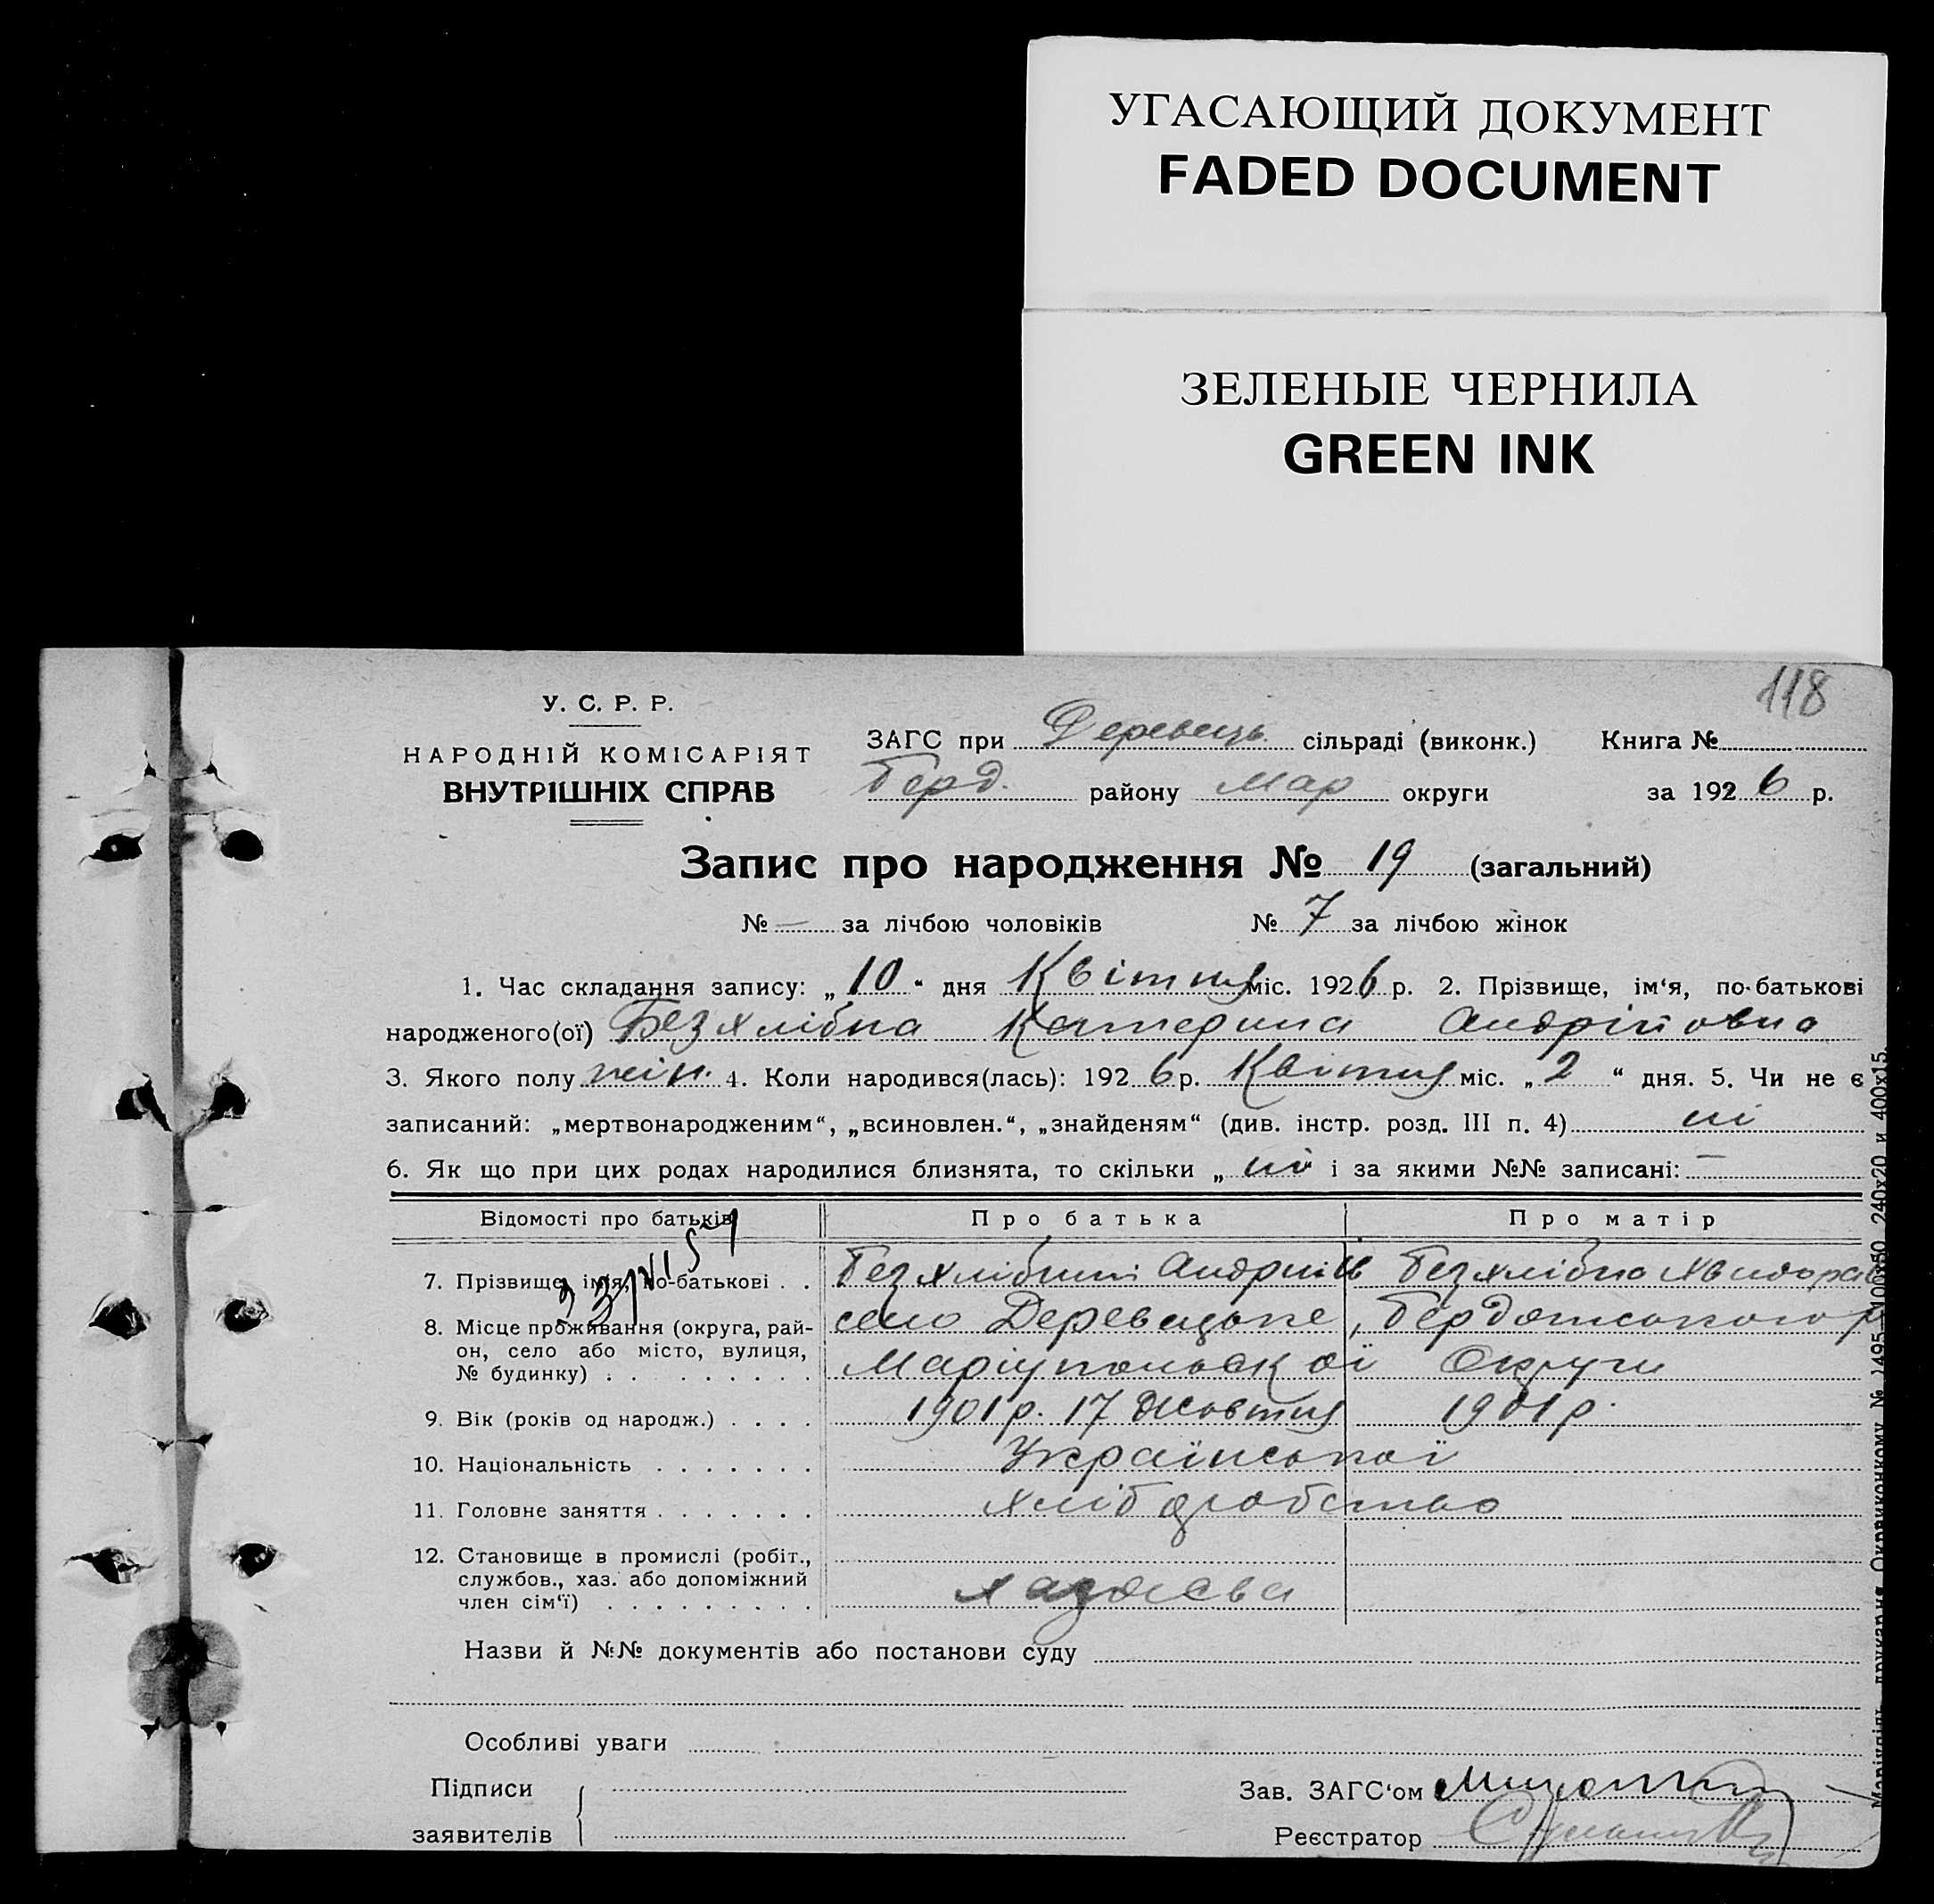 УГАСАЮЩИЙ ДОКУМЕНТ
FADED DOCUMENT
ЗЕЛЕНЫЕ ЧЕРНИЛА
GREEN INK
118
У. С. Р. Р.
НАРОДНІЙ КОМІСАРІЯТ
ВНУТРІШНІХ СПРАВ
ЗАГС при Деревець сільраді (виконк.) Книга №
Берд. району Мар округи за 1926 р.
Запис про народження № 19 (загальний)
№ — за лічбою чоловіків № 7 за лічбою жінок
1. Час складання запису: „10“ дня Квітня міс. 1926 р. 2. Прізвище, ім‘я, по-батькові
народженого(ої) Безхлібна Катерина Андрійовна
3. Якого полу жін. 4. Коли народився(лась): 1926 р. Квітня міс. „2“ дня. 5. Чи не є
записаний: „мертвонародженим“, „всиновлен.“, „знайденям“ (див. інстр. розд. III п. 4) ні
6. Як що при цих родах народилися близнята, то скільки „ ні і за якими №№ записані: —
Відомості про батьків Про батька Про матір
7. Прізвище, ім‘я, по-батькові . . Безхлібний Андрій Безхлібна
8. Місце проживання (округа, рай- село Деревецьке, Бердянського р
он, село або місто, вулиця, Маріупольскої Округи
№ будинку) . . . . . . . . .
9. Вік (років од народж.) . . . . 1901 р. 17 Жовтня 1901 р.
10. Національність . . . . . . . Української
11. Головне заняття . . . . . . . хліборобство
12. Становище в промислі (робіт.,
службов., хаз. або допоміжний
член сім‘ї) . . . . . . . . . хазяєва
Назви й №№ документів або постанови суду
Особливі уваги
Підписи
заявителів
Зав. ЗАГС‘ом
Реєстратор